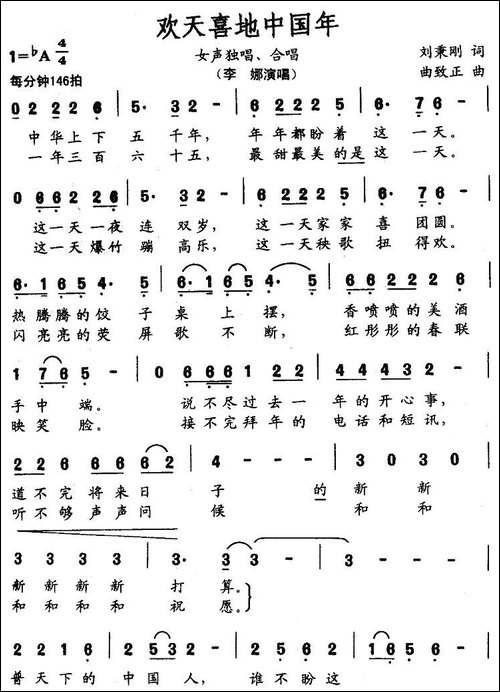 欢天喜地中国年
1=♭A 4/4
女声独唱、合唱
刘秉刚 词
每分钟146拍
（李 娜演唱）
曲致正 曲
0 2 2 2 6 | 5· 3 2 | 6 2 2 2 5 | 6· 7 6 - |
中华上下 五 千年， 年年都盼着 这一天。
一年三百 六 十五， 最甜最美的是 这一天。
0 6 6 2 2 2 6 | 5· 3 2 - | 6 2 2 2 5 | 6· 7 6 - |
这一天一夜连 双岁， 这一天家家喜 团圆。
这一天爆竹蹦 高乐， 这一天秧歌扭 得欢。
6· 1 6 5 4· 5 | 5 2 5 1 6 | 5 6 5 4· 5 | 6 6 2 2 2 6 |
热腾腾的饺 子桌上 摆， 香喷喷的美酒
闪亮亮的荧 屏歌不 断， 红彤彤的春联
1 7 6 5 - | 0 6 6 6 6 1 | 2 2 2 2 1 | 4 4 4 3 2 |
手中端。 说不尽过去一 年的开心事，
映笑脸。 接不完拜年的 电话和短讯，
2 2 6 6 6 6 2 | 4 - - - | 3 0 3 0 |
道不完将来日 子 的 新 新
听不够声声问 候 和 和
3 3 3 3 | 3· 3 | 3 3 - - | 3 - - - |
新新新新 打 算。
和和和和 祝 愿。
2 2 1 6 | 2 5 3 2 - | 5 2 1 2 | 1 6 5 6 - |
普天下的 中国人， 谁不盼这